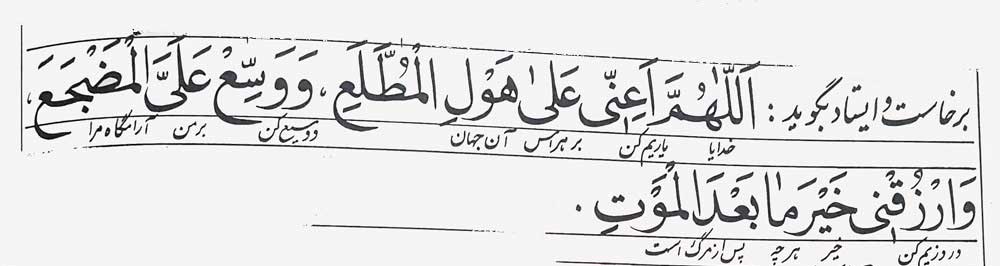 برخاست و ایستاد بگوید: اَللّٰهُمَّ اَعِنّی عَلیٰ هَوْلِ الْمُطَّلَعِ، وَ وَسِّعْ عَلَیَّ الْمَضْجَعَ،
خدایا یاریم کن بر هراس آن جهان و وسیع کن بر من آرامگاه مرا
وَارْزُقْنی خَیْرَ مٰا بَعْدَ الْمَوْتِ.
و روزیم کن خیر هرچه پس از مرگ است